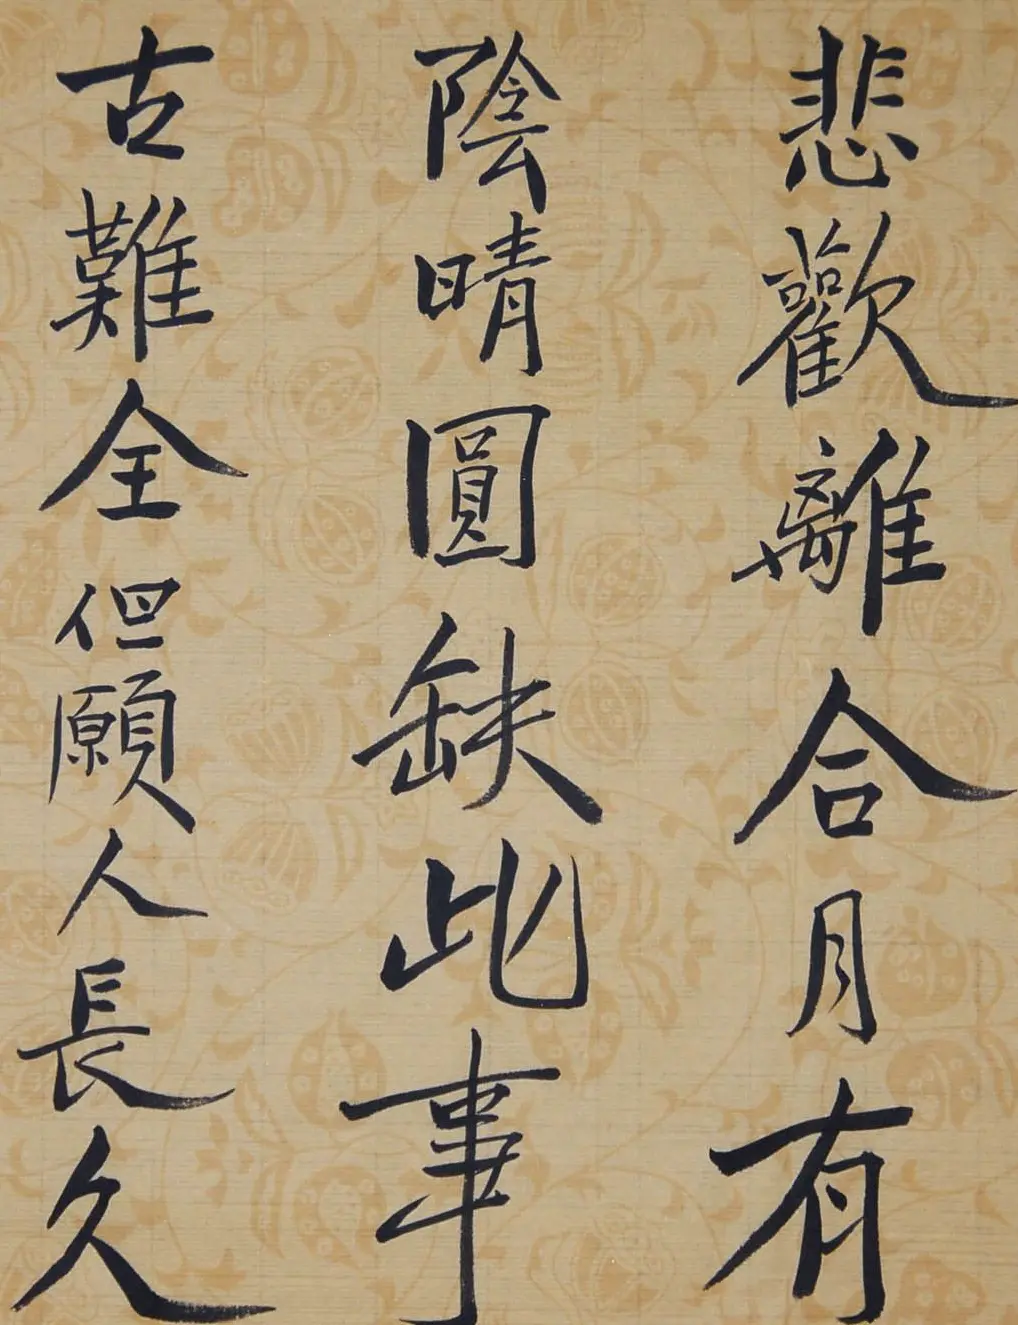 悲歡離合月有
陰晴圓缺此事
古難全但願人長久